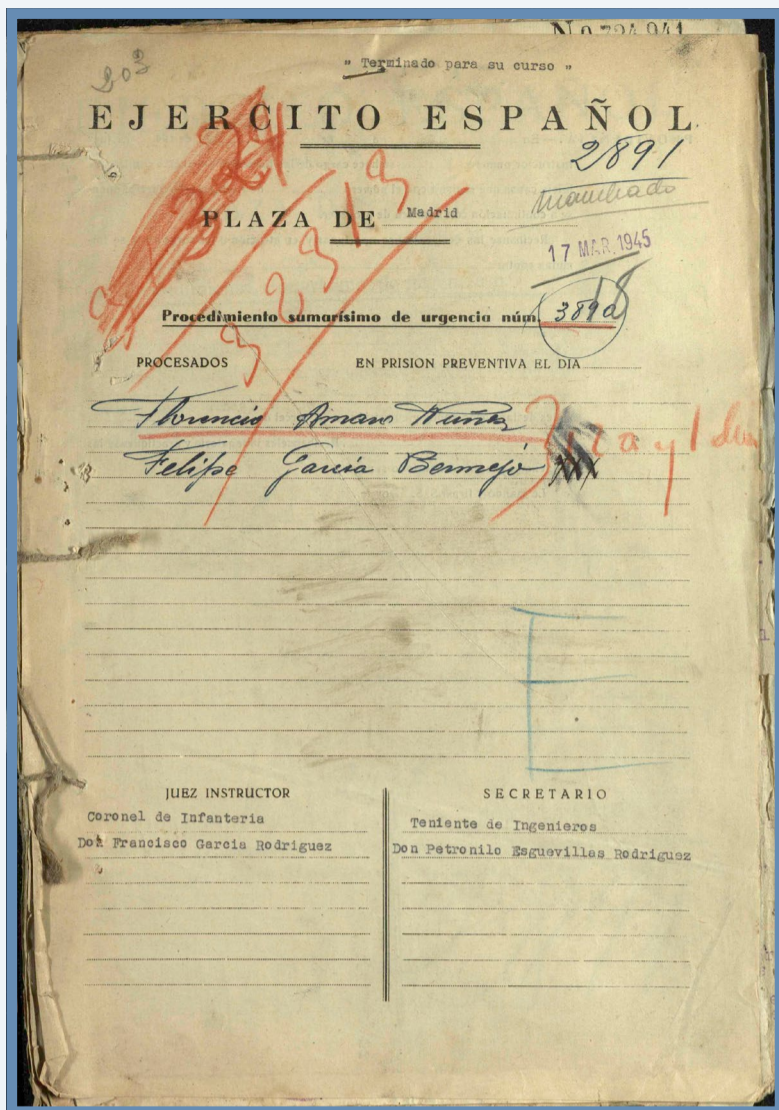 Nº 724.941
203
" Terminado para su curso "
EJERCITO ESPAÑOL
2891
PLAZA DE Madrid
17 MAR. 1945
32313
Procedimiento sumarísimo de urgencia núm.
PROCESADOS EN PRISION PREVENTIVA EL DIA
Florencio Amaro Nuñez
Felipe García Bermejo
JUEZ INSTRUCTOR
Coronel de Infanteria
Don Francisco Garcia Rodriguez
SECRETARIO
Teniente de Ingenieros
Don Petronilo Esguevillas Rodriguez